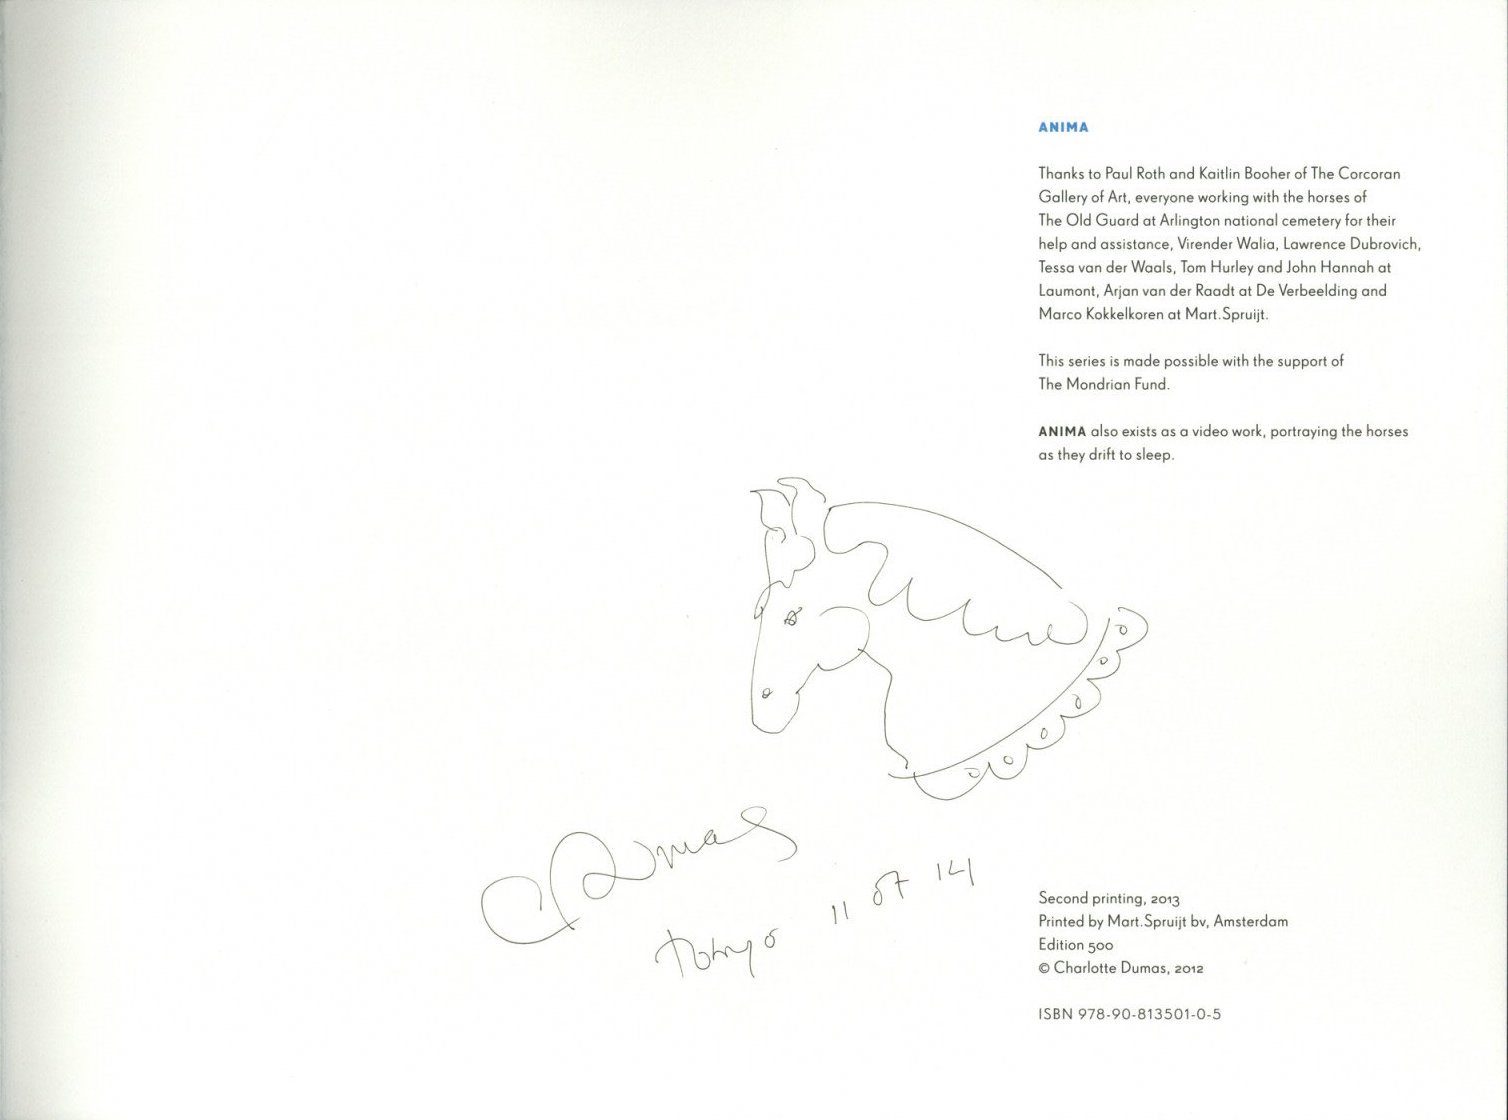 ANIMA
Thanks to Paul Roth and Kaitlin Booher of The Corcoran
Gallery of Art, everyone working with the horses of
The Old Guard at Arlington national cemetery for their
help and assistance, Virender Walia, Lawrence Dubrovich,
Tessa van der Waals, Tom Hurley and John Hannah at
Laumont, Arjan van der Raadt at De Verbeelding and
Marco Kokkelkoren at Mart.Spruijt.
This series is made possible with the support of
The Mondrian Fund.
ANIMA also exists as a video work, portraying the horses
as they drift to sleep.
C Dumas
Tokyo 11 07 14
Second printing, 2013
Printed by Mart.Spruijt bv, Amsterdam
Edition 500
© Charlotte Dumas, 2012
ISBN 978-90-813501-0-5